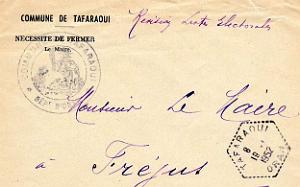 COMMUNE DE TAFARAOUI
Révision Listes Electorales
NECESSITE DE FERMER
Le Maire,
TAFARAOUI
Monsieur Le Maire
TAFARAOUI
8 H
18 -1
1952
ORAN
à Fréjus